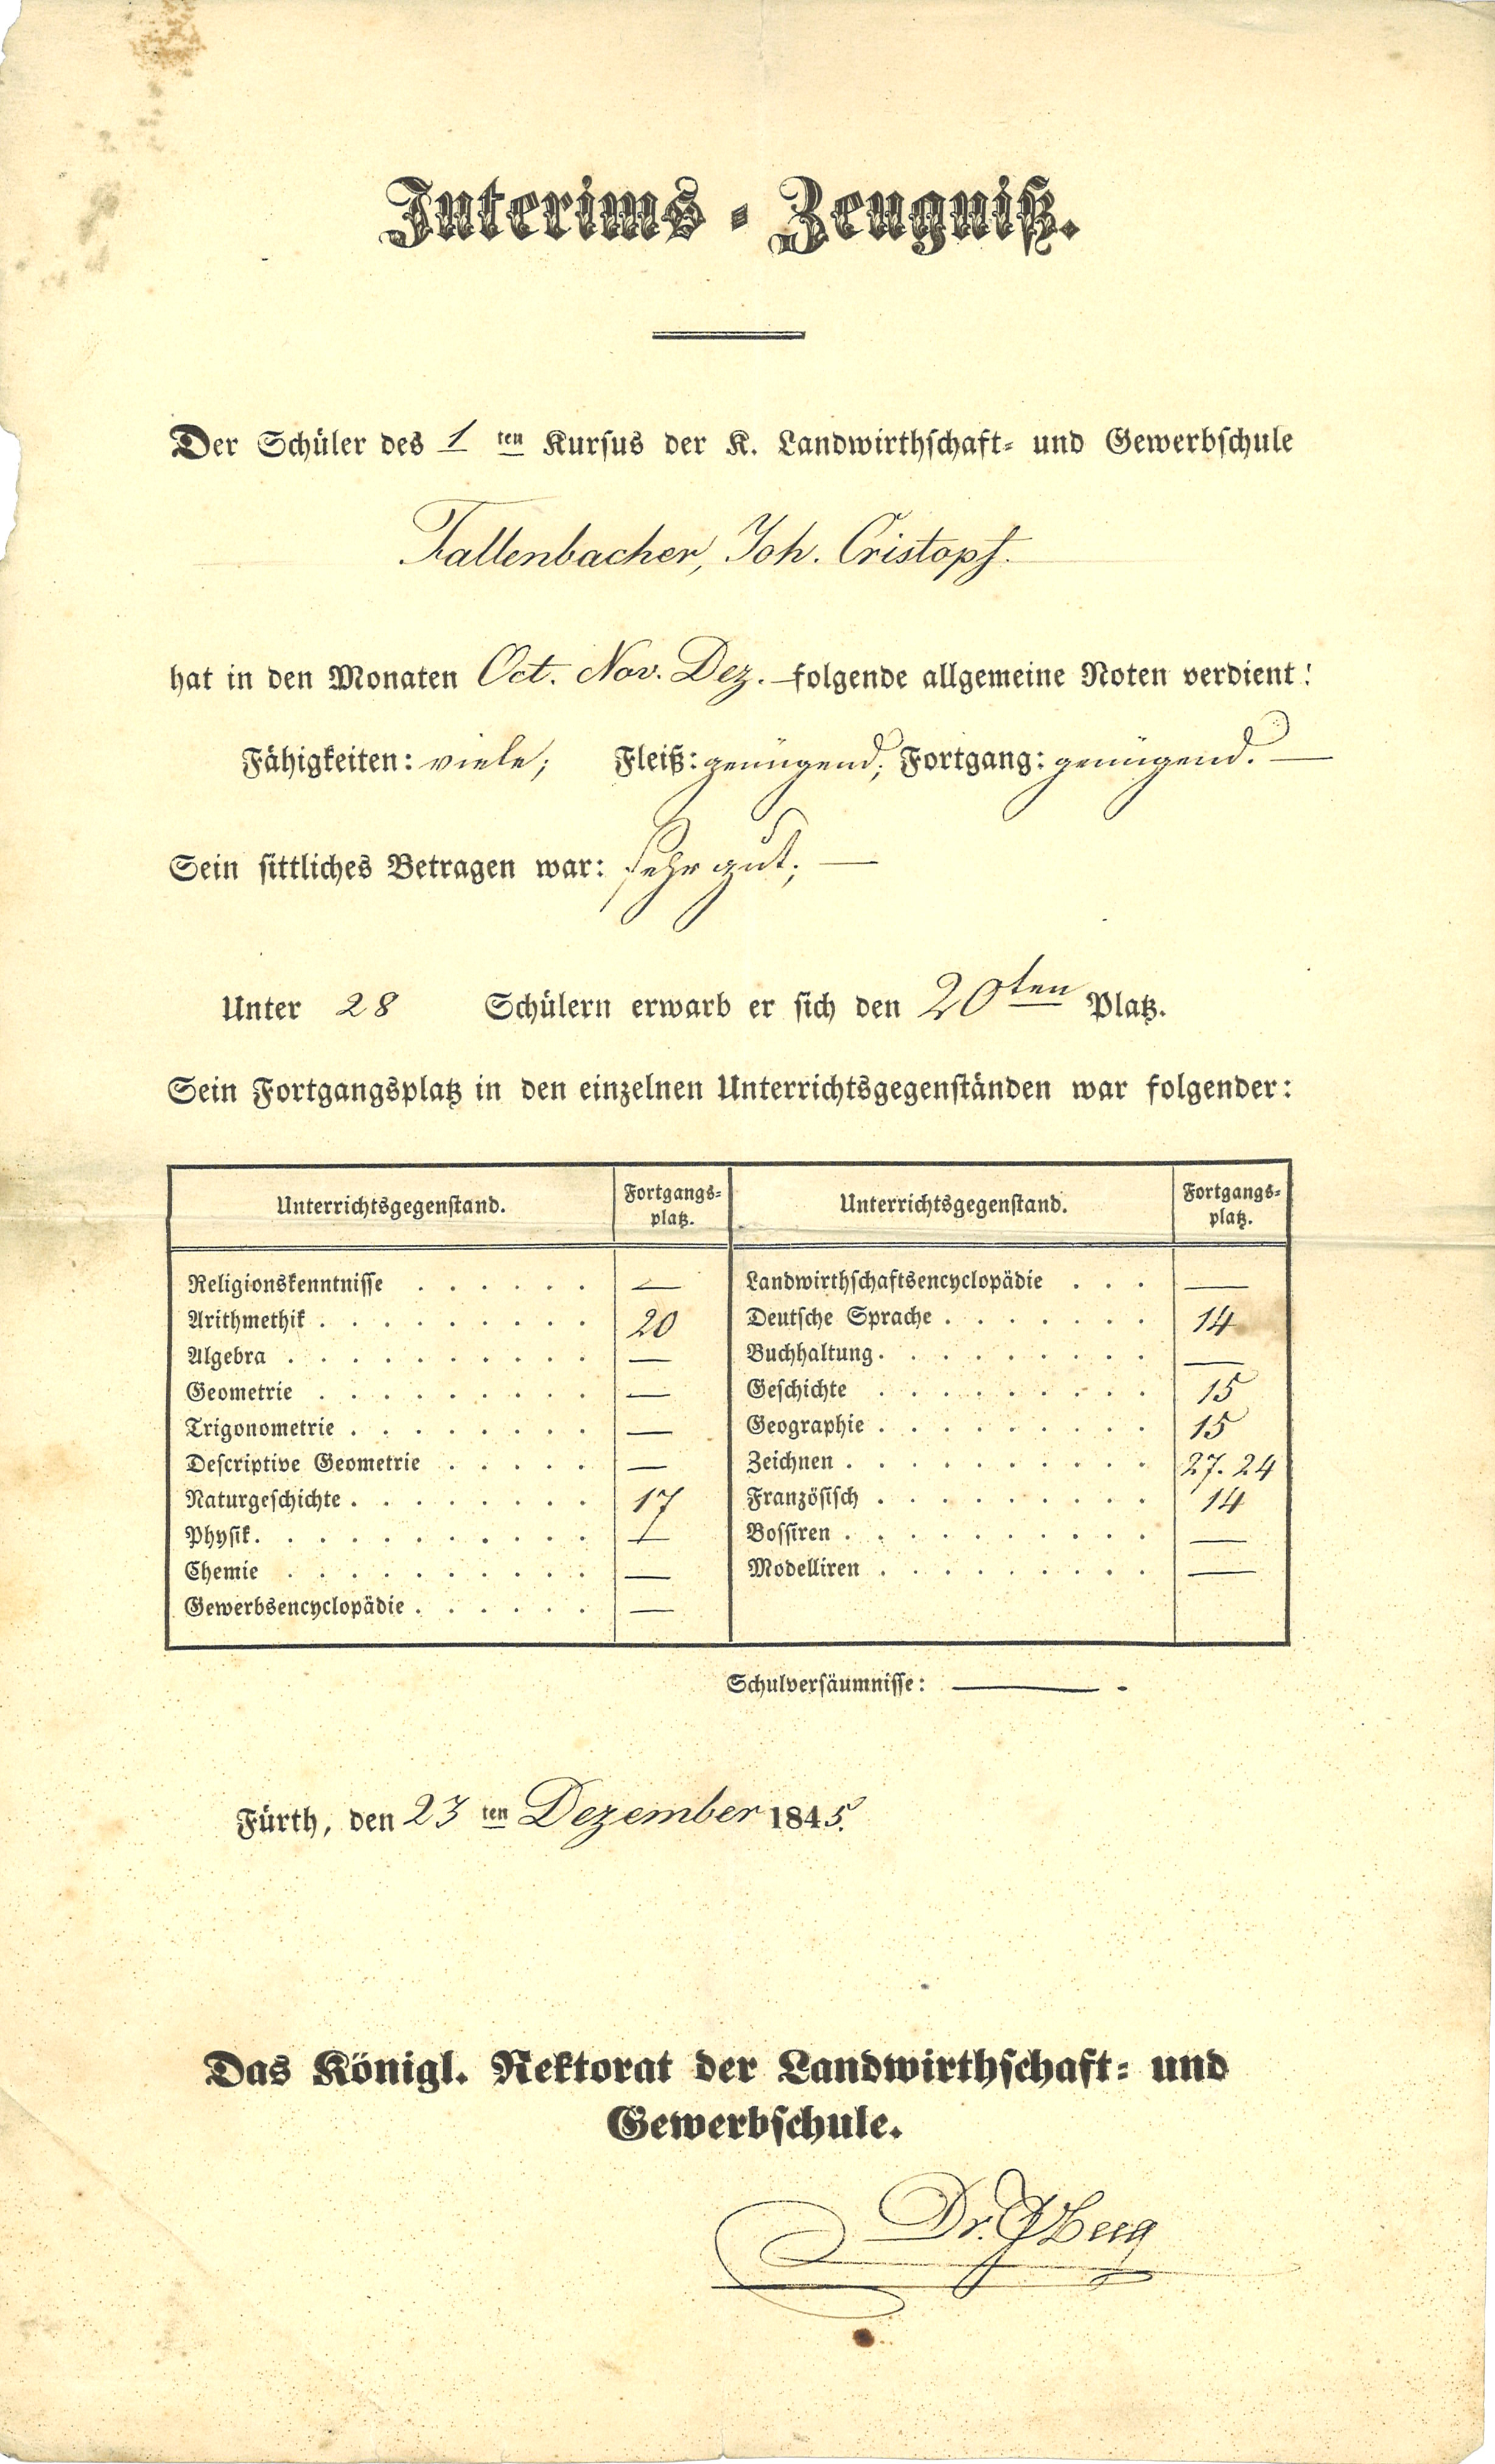 Interims-Zeugniß.
Der Schüler des 1 ten Kursus der K. Landwirthschaft- und Gewerbschule
Fallenbacher, Joh. Cristopf.
hat in den Monaten Oct. Nov. Dez. folgende allgemeine Noten verdient:
Fähigkeiten: viele; Fleiß: genügend; Fortgang: genügend. —
Sein sittliches Betragen war: sehr gut; —
Unter 28 Schülern erwarb er sich den 20ten Platz.
Sein Fortgangsplatz in den einzelnen Unterrichtsgegenständen war folgender:
Unterrichtsgegenstand. Fortgangs-platz. Unterrichtsgegenstand. Fortgangs-platz.
Religionskenntnisse . . . . . . — Landwirthschaftsencyclopädie . . . —
Arithmethik . . . . . . . . . 20 Deutsche Sprache . . . . . . . 14
Algebra . . . . . . . . . . — Buchhaltung . . . . . . . . . —
Geometrie . . . . . . . . . — Geschichte . . . . . . . . . 15
Trigonometrie . . . . . . . . — Geographie . . . . . . . . . 15
Descriptive Geometrie . . . . . — Zeichnen . . . . . . . . . . 27. 24
Naturgeschichte . . . . . . . . 17 Französisch . . . . . . . . . 14
Physik . . . . . . . . . . . — Bossiren . . . . . . . . . . —
Chemie . . . . . . . . . . — Modelliren . . . . . . . . . —
Gewerbsencyclopädie . . . . . . —
Schulversäumnisse: — .
Fürth, den 23 ten Dezember 1845.
Das Königl. Rektorat der Landwirthschaft- und
Gewerbschule.
Dr.